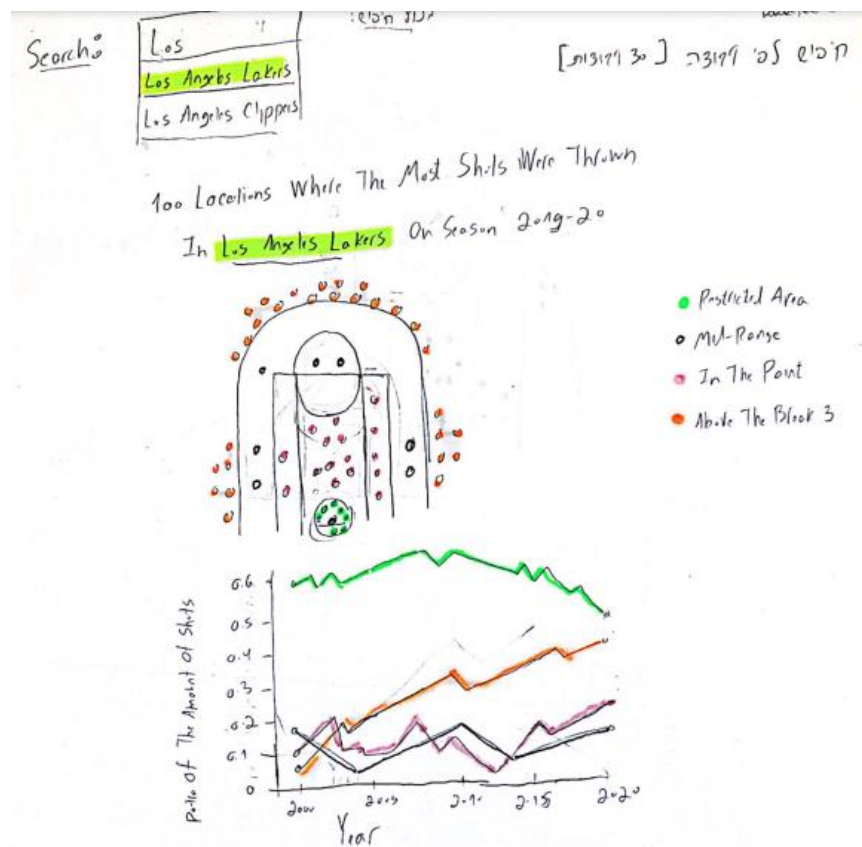 Search:
Los
Los Angeles Lakers
Los Angeles Clippers
חיפוש לפי קבוצה [30 קבוצות]
100 Locations Where The Most Shots Were Thrown
In Los Angeles Lakers On Season 2019-20
Restricted Area
Mid-Range
In The Paint
Above The Break 3
Ratio Of The Amount Of Shots
0.6
0.5
0.4
0.3
0.2
0.1
0
2000
2005
2010
2015
2020
Year